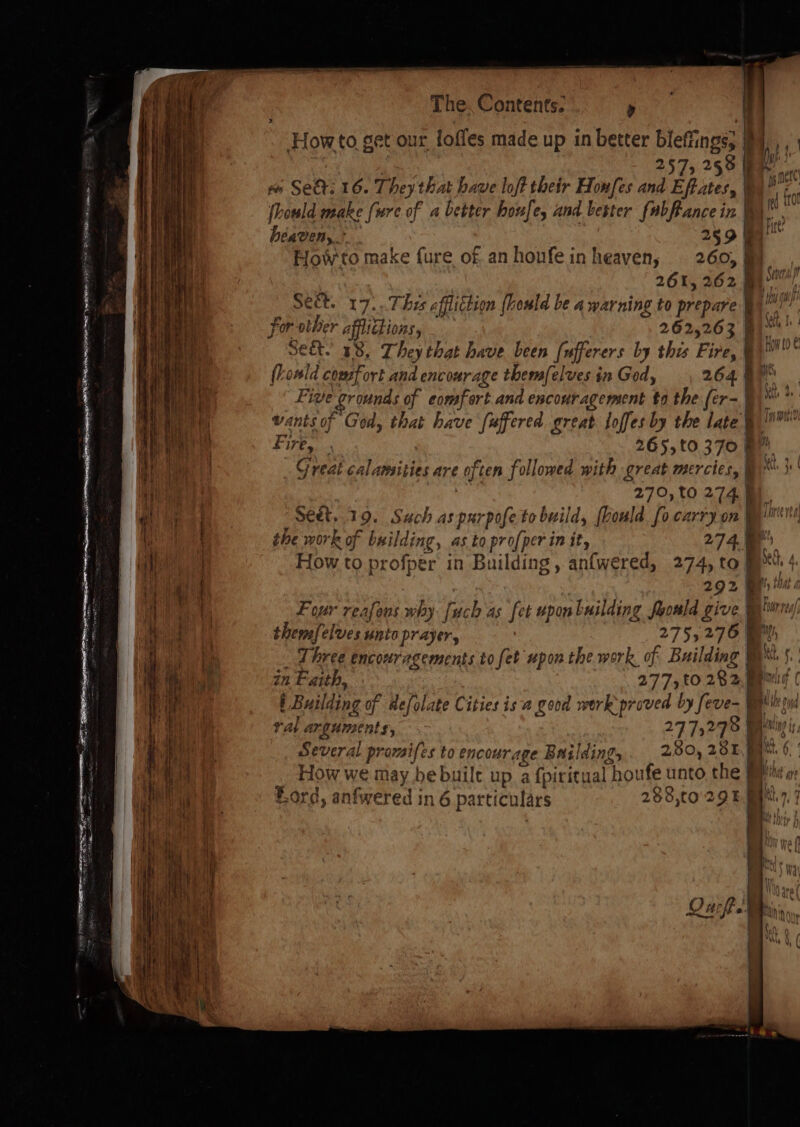 The Contents.
How to get our losses made up in better blessings,
257, 258
Sect. 16. They that have lost their Houses and Estates,
should make sure of a better house, and better substance in
heaven,
259
How to make sure of an house in heaven, 260,
261, 262
Sect. 17. This affliction should be a warning to prepare
for other afflictions, 262,263
Sect. 18. They that have been sufferers by this Fire,
should comfort and encourage themselves in God, 264
Five grounds of comfort and encouragement to the ser-
vants of God, that have suffered great losses by the late
Fire, 265, to 370
Great calamities are often followed with great mercies,
270, to 274
Sect. 19. Such as purpose to build, should so carry on
the work of building, as to prosper in it, 274
How to prosper in Building, answered, 274, to
292
Four reasons why such as set upon building should give
themselves unto prayer, 275, 276
Three encouragements to set upon the work of Building
in Faith, 277, to 282
Building of desolate Cities is a good work proved by seve-
ral arguments, 277,278
Several promises to encourage Building, 280, 281
How we may be built up a spiritual house unto the
Lord, answered in 6 particulars 288, to 291
Quest.